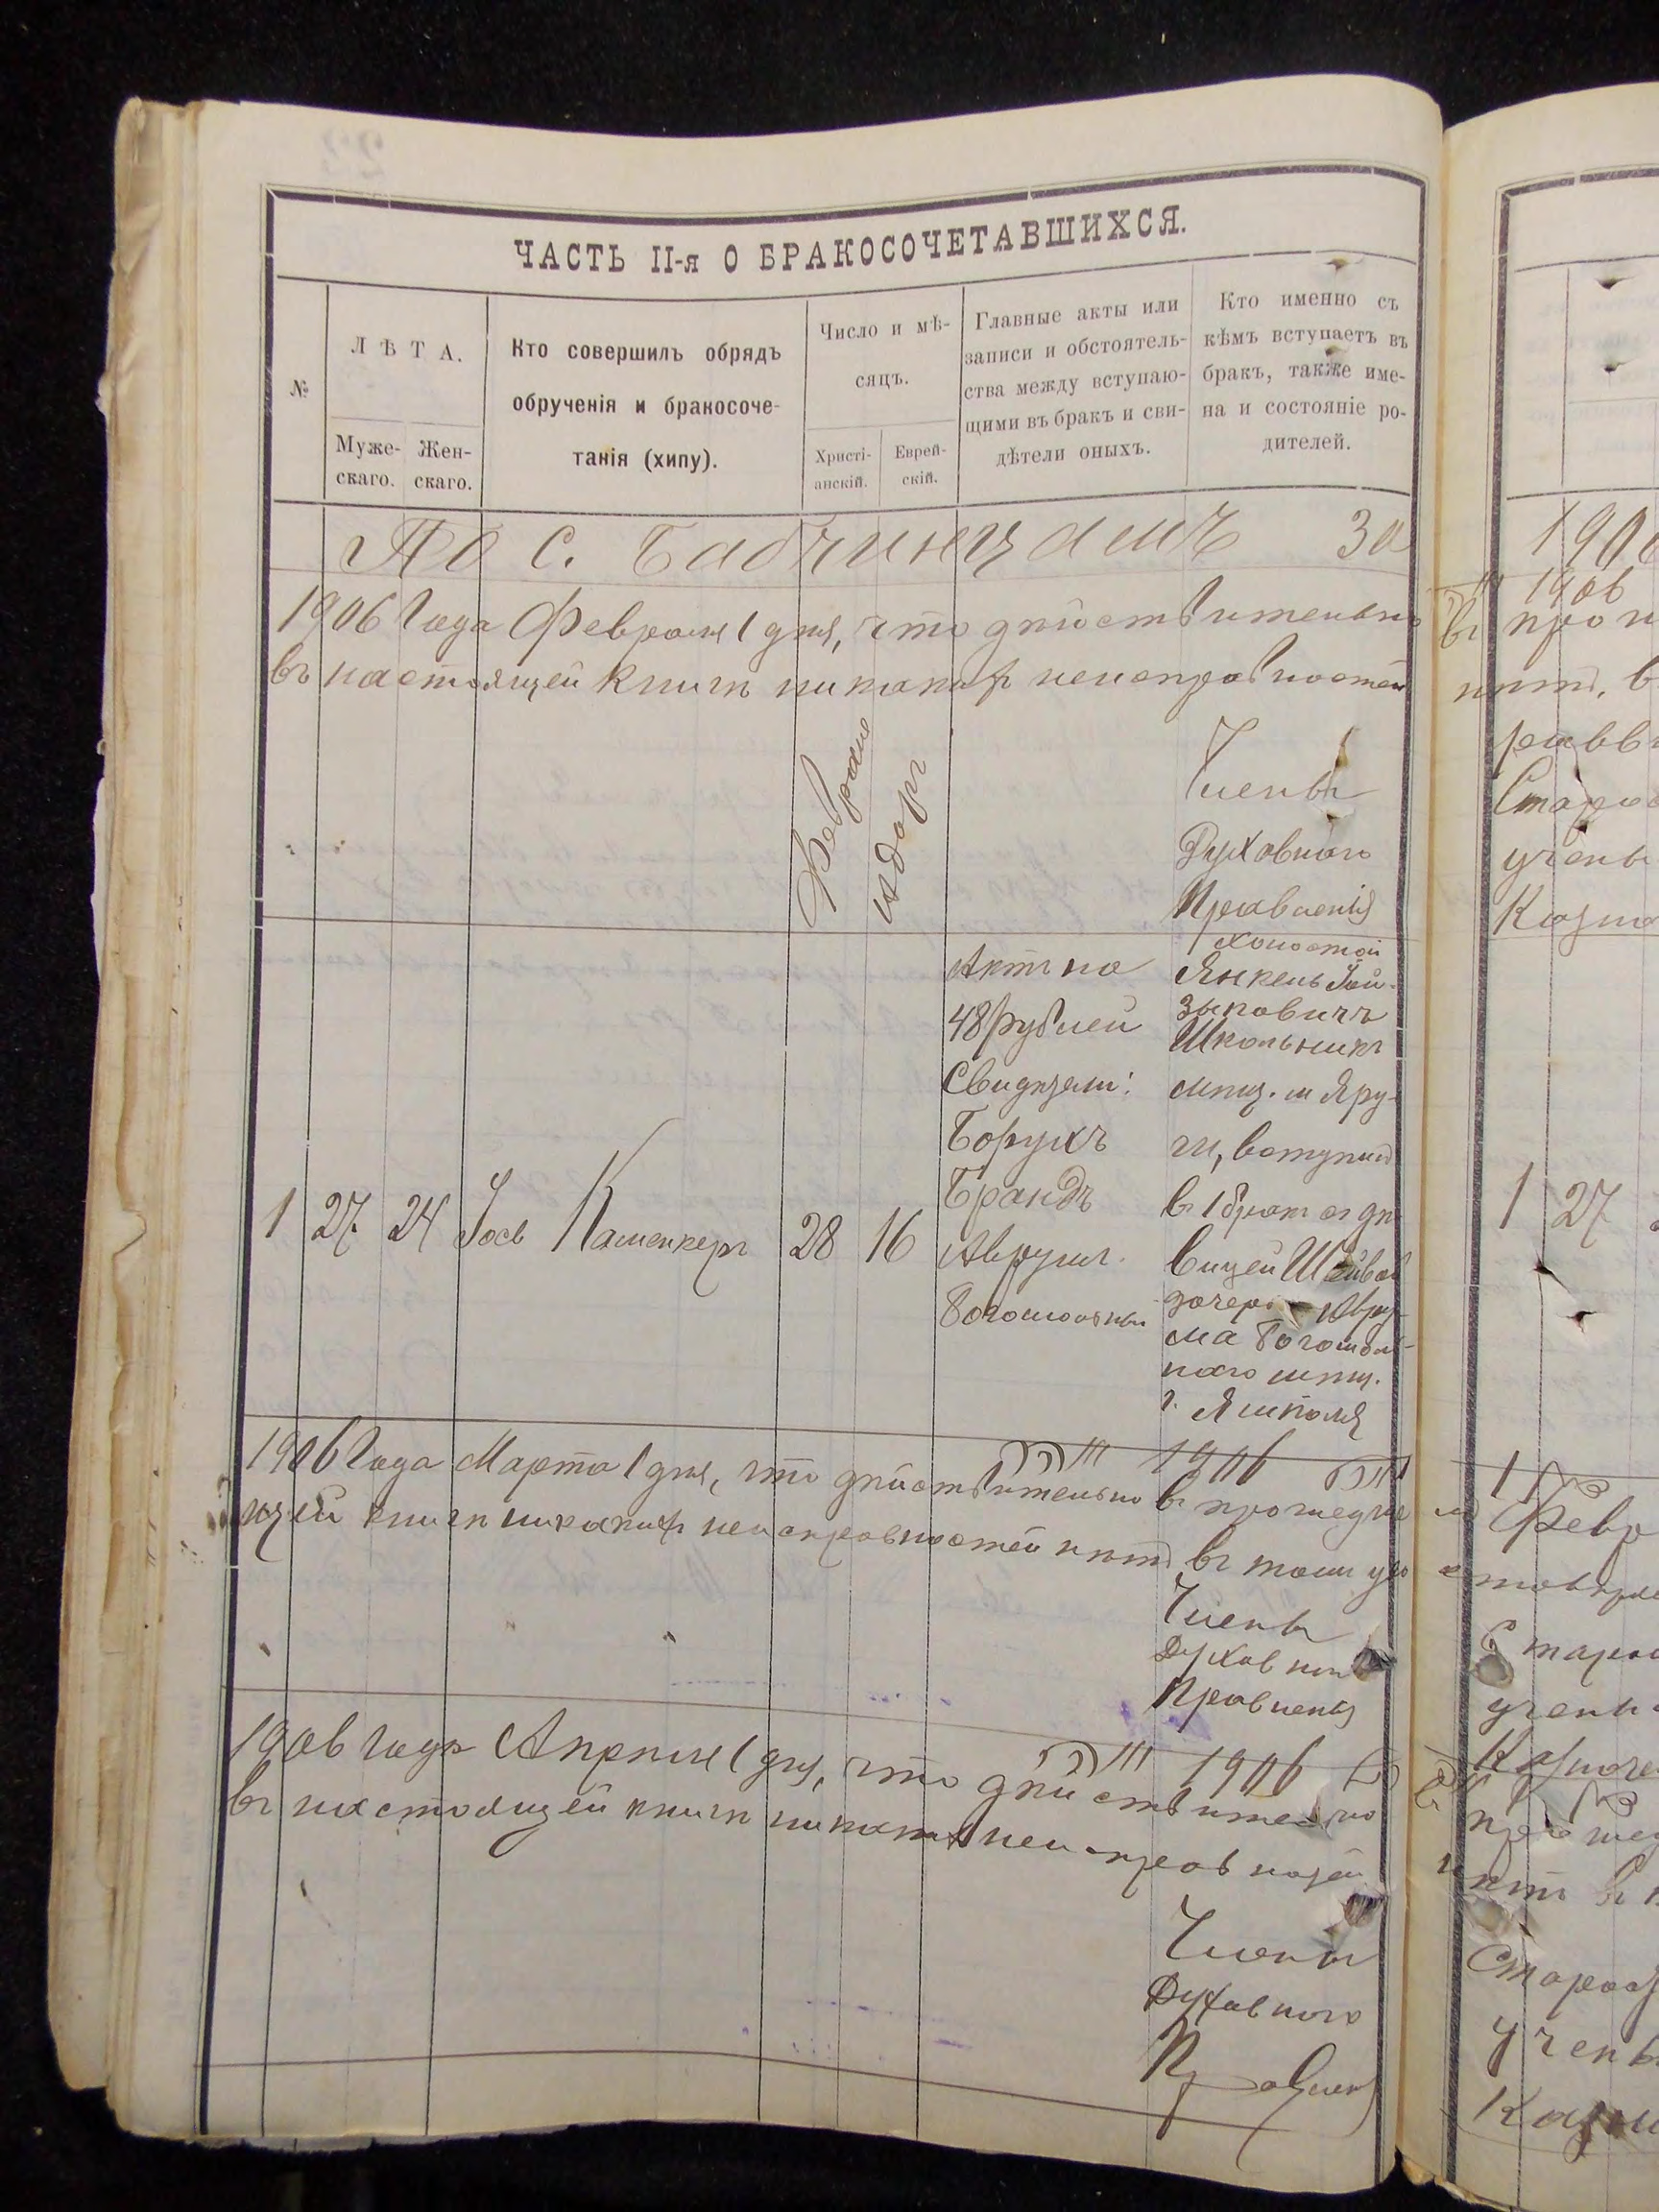 ЧАСТЬ II-я О БРАКОСОЧЕТАВШИХСЯ.
№
ЛѢТА.
Муже-
скаго.
Жен-
скаго.
Кто совершилъ обрядъ
обрученія и бракосоче-
танія (хипу).
Число и мѣ-
сяцъ.
Христі-
анскій.
Еврей-
скій.
Главные акты или
записи и обстоятель-
ства между вступаю-
щими въ бракъ и сви-
дѣтели оныхъ.
Кто именно съ
кѣмъ вступаетъ въ
бракъ, также име-
на и состояніе ро-
дителей.
По с. Бабчинцамъ за
1906 Года Февраля 1 дня, что дѣйствительно
въ настоящей книгѣ никакихъ неисправностей
Члены
Духовного
Правленія
Февраль
Адаръ
1 27 24 Іось Каменкеръ 28 16
Актъ на
48 рублей
Свидѣтели:
Борухъ
Брандъ
Аврумъ
Богомольный
холостой
Янкель Гой-
зыковичъ
Школьникъ
мѣщ. м Яру-
ги, вступилъ
въ 1 бракъ съ дѣ-
вицей Шейвой
дочерью Авру-
ма Богомоль-
наго мѣщ.
г. Ямполя
1906
1906 Года Марта 1 дня, что дѣйствительно въ прошедше
щей книгѣ никакихъ неисправностей нѣтъ въ томъ удо
Члены
Духовного
Правленія
1906
1906 Года Апрѣля 1 дня, что дѣйствительно
въ настоящей книгѣ никакихъ неисправностей
Члены
Духовного
Правленія
1906
1906
1 27
Февр